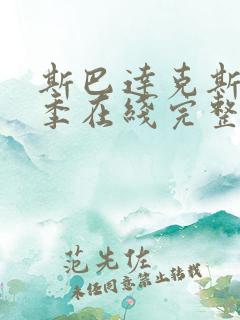 斯巴达克斯
季在线完整
范先佐
未经同意禁止转载